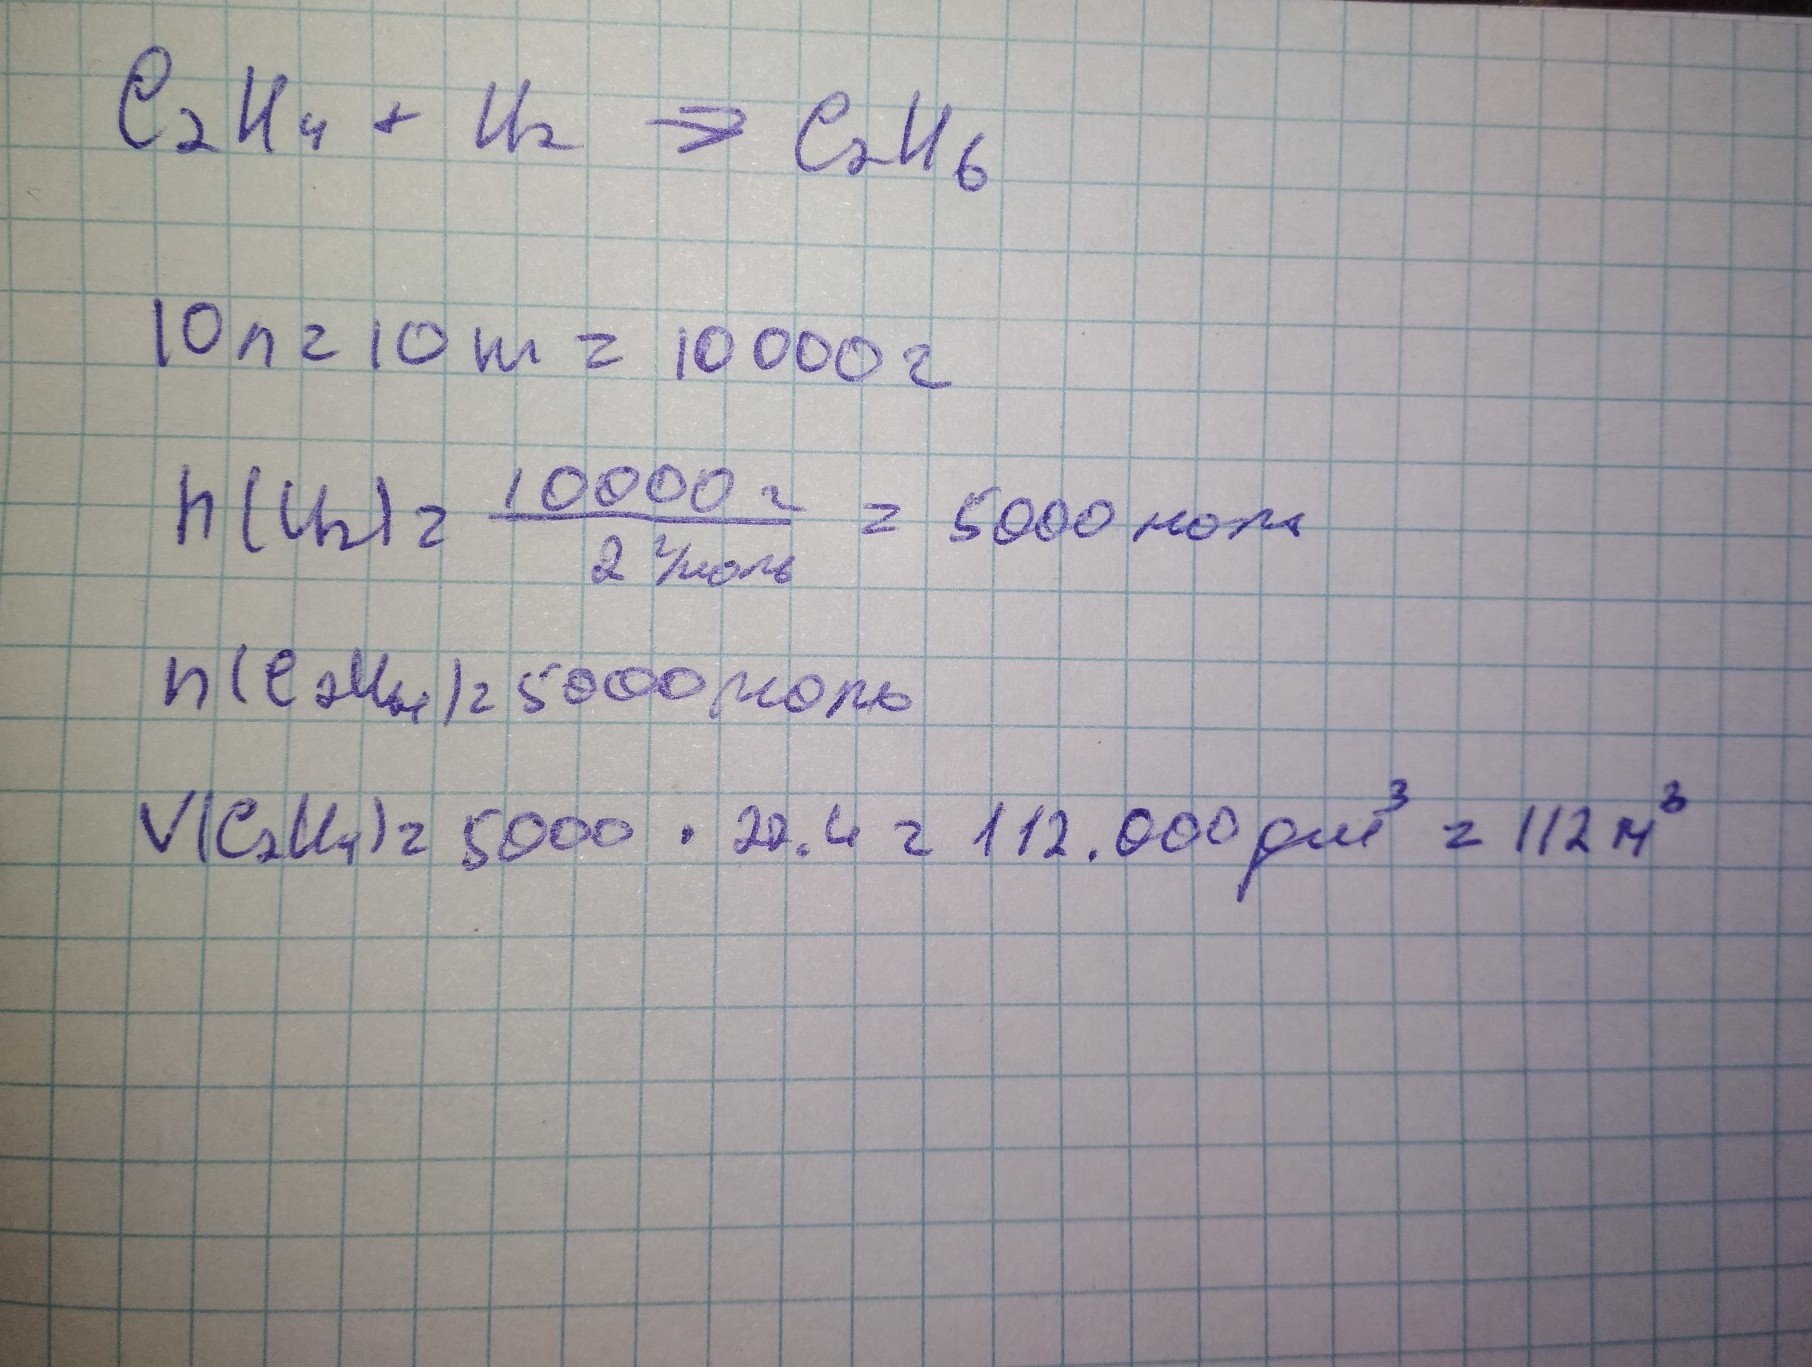 C₂H₄ + H₂ → C₂H₆
10л = 10 кг = 10000 г
n(H₂) = 10000 г / 2 г/моль = 5000 моль
n(C₂H₄) = 5000 моль
V(C₂H₄) = 5000 · 22.4 = 112.000 дм³ = 112 м³